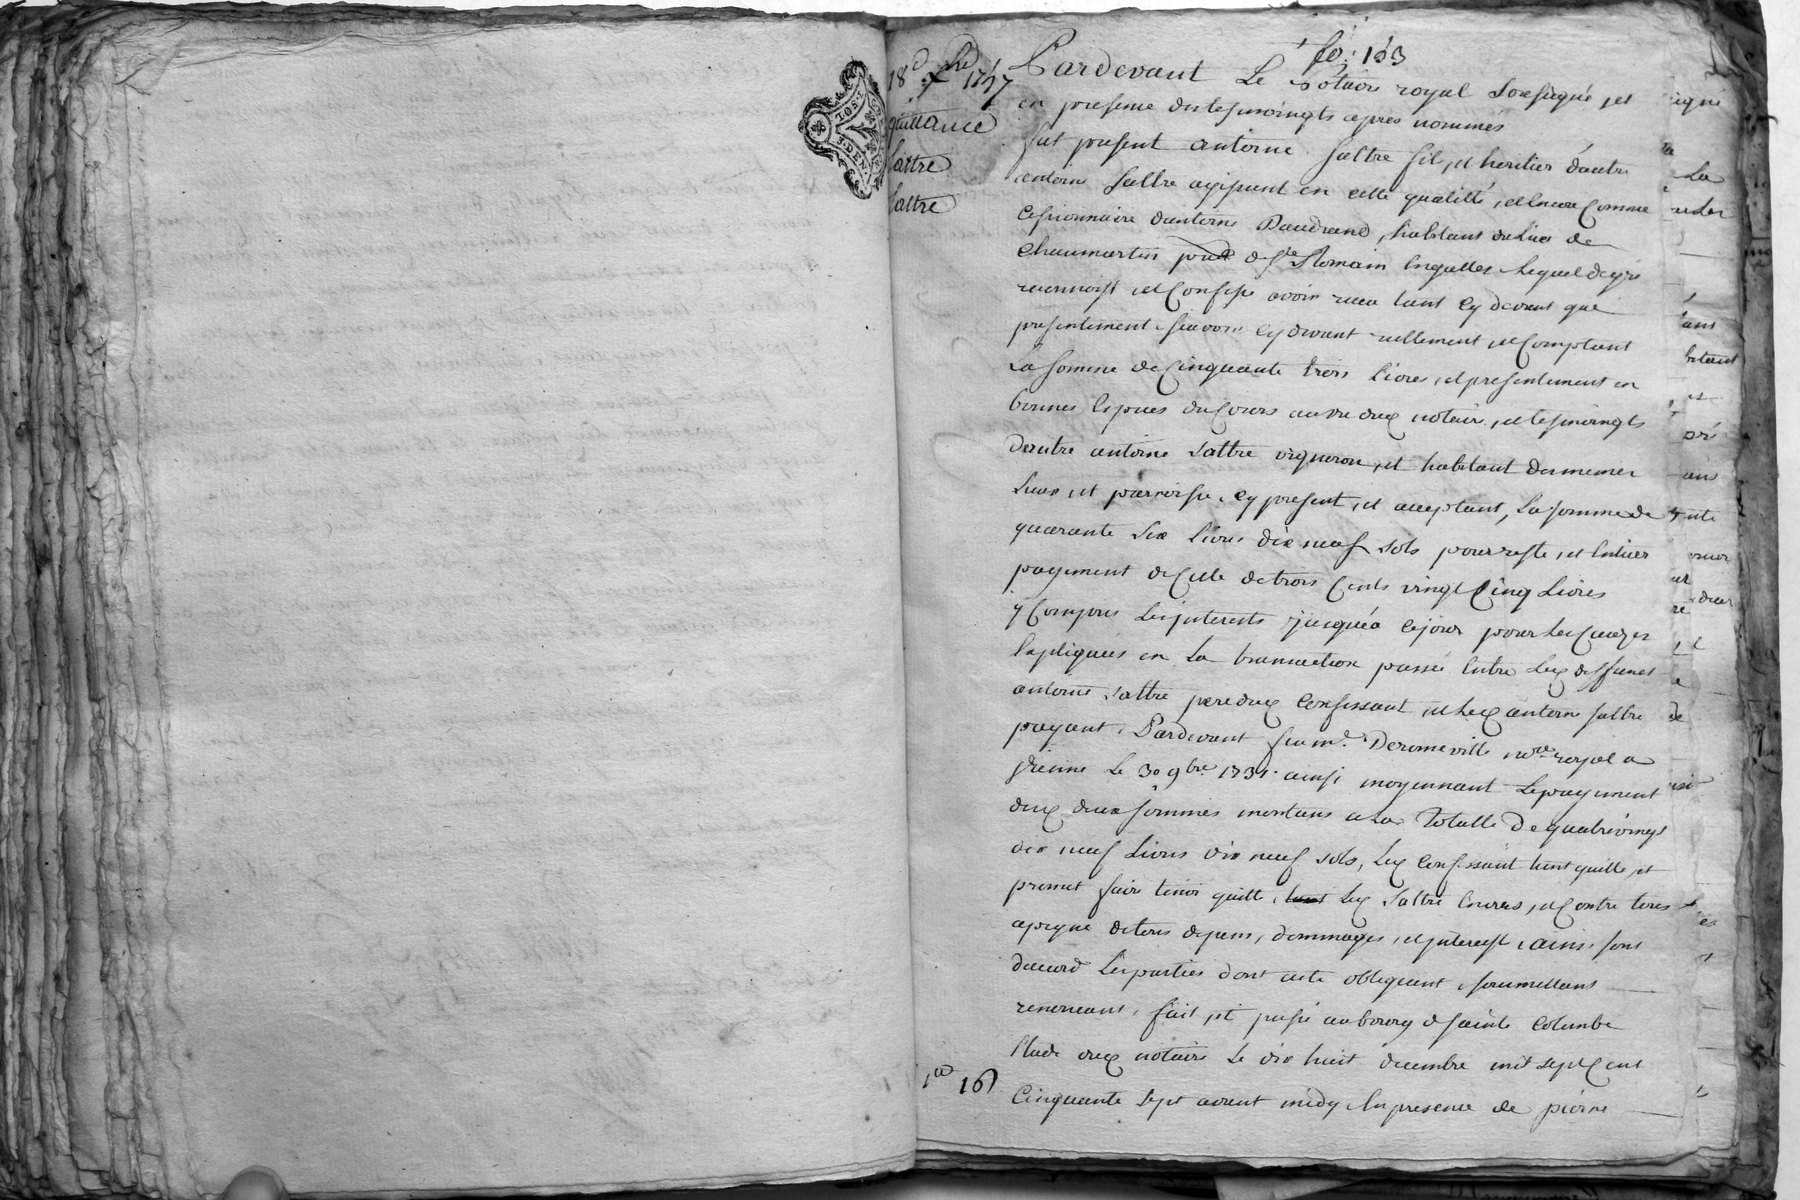 fo: 133
18e xbre 1757
quittance
Sattre
Sattre
LOS. T
3. DEN
Pardevant Le Notaire royal Soussigné, et
en presence des tesmoingts apres nommés
fut present antoine Sattre fils, et heritier d'autre
antoine Sattre agissant en cette qualitté, et Encore Comme
Cessionnaire d'antoine Daudrand, habitant du lieu de
Chaumartin parsse de St Romain Engalles, Lequel de gré
reconnoist, et Confesse avoir receu tant Cy devant que
presentement, Scavoir Cy devant reellement, et Comptant
La Somme de Cinquante trois livres, et presentement en
bonnes Especes du Cours au vu dud notaire, et tesmoingts
d'autre antoine Sattre vigneron, et habitant des memes
Lieux, et parroisse, Cy present, et acceptant, La Somme de
quarante Six Livres dix neuf Sols pour reste, et Entier
payement de Celle de trois Cents vingt Cinq Livres
y Compris Les jnterests jusqu'a Ce jour pour Les Causes
Expliquées en La transaction passée Entre Led deffunct
antoine Sattre pere dud Confessant, et Led antoine Sattre
payant, Pardevant feu me Deromeville nore royal a
Vienne Le 30 9bre 1731. ainsi moyennant Le payement
dud deux Sommes montans a La Totalle De quatrevingt
dix neuf Livres dix neuf Sols, Led Confessant tient quitte, et
promet faire tenir quitte, Led Sattre Envers, et Contre tous
a peyne de tous depens, dommages, et jnterest, ainsi Sont
d'accord Les parties dont acte obligeant, Soumettans
renonceant, fait, et passé au bourg de Sainte Colombe
Etude dud notaire Le dix huit decembre mil Sept Cent
Cinquante Sept avant midy En presence de pierre
1ce 16